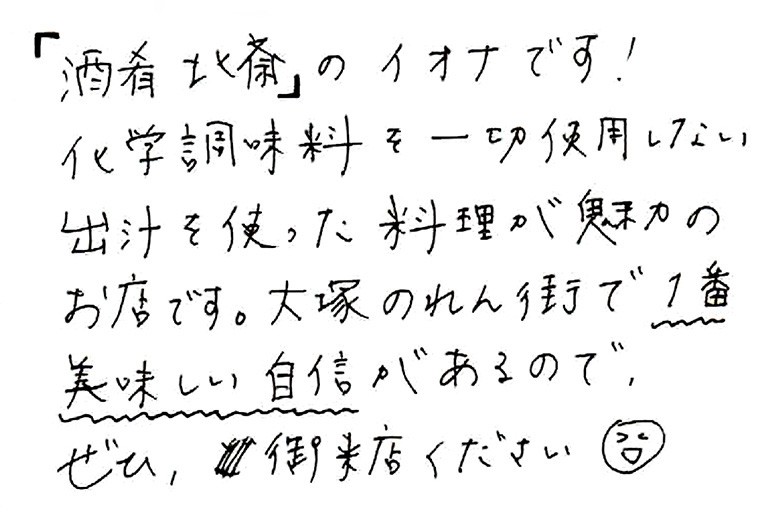 「酒肴 北斎」の イオナです!
化学調味料を一切使用しない
出汁を使った 料理が魅力の
お店です。大塚のれん街で 1番
美味しい自信があるので、
ぜひ、御来店ください